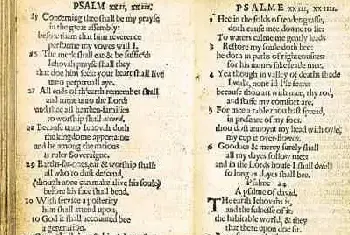 PSALM xxii, xxiii.
25 Concerning thee shall be my prayse
in the great assembly:
before them that him reverence
performe my vowes will I.
26 The meek shall eat & be suffic'd
Jehovah prayse shall they
that doe him seek: your heart shall live
unto perpetuall aye.
27 All ends of th'earth remember shall
and turne unto the Lord:
and thee all heathen-families
to worship shall accord.
28 Because unto Jehovah doth
the kingdome appertaine:
and he among the nations
is ruler Soveraigne.
29 Earths-fat-ones, eat & worship shall:
all who to dust descend,
(though none can make alive his soule)
before his face shall bend.
30 With service a posterity
him shall attend upon;
to God it shall accounted bee
a generation.
PSALME xxiii, xxiiii.
2 Hee in the folds of tender-grasse,
doth cause mee downe to lie:
To waters calme me gently leads
3 Restore my soule doth hee:
he doth in paths of righteousnes:
for his names sake leade mee.
4 Yea though in valley of deaths shade
I walk, none ill I'le feare:
because thou art with mee, thy rod,
and staffe my comfort are.
5 For mee a table thou hast spread,
in presence of my foes:
thou dost annoynt my head with oyle,
my cup it over-flowes.
6 Goodnes & mercy surely shall
all my dayes follow mee:
and in the Lords house I shall dwell
so long as dayes shall bee.
Psalme 24
A psalme of david.
THe earth Iehovahs is,
and the fulnesse of it:
the habitable world, & they
that there upon doe sit.